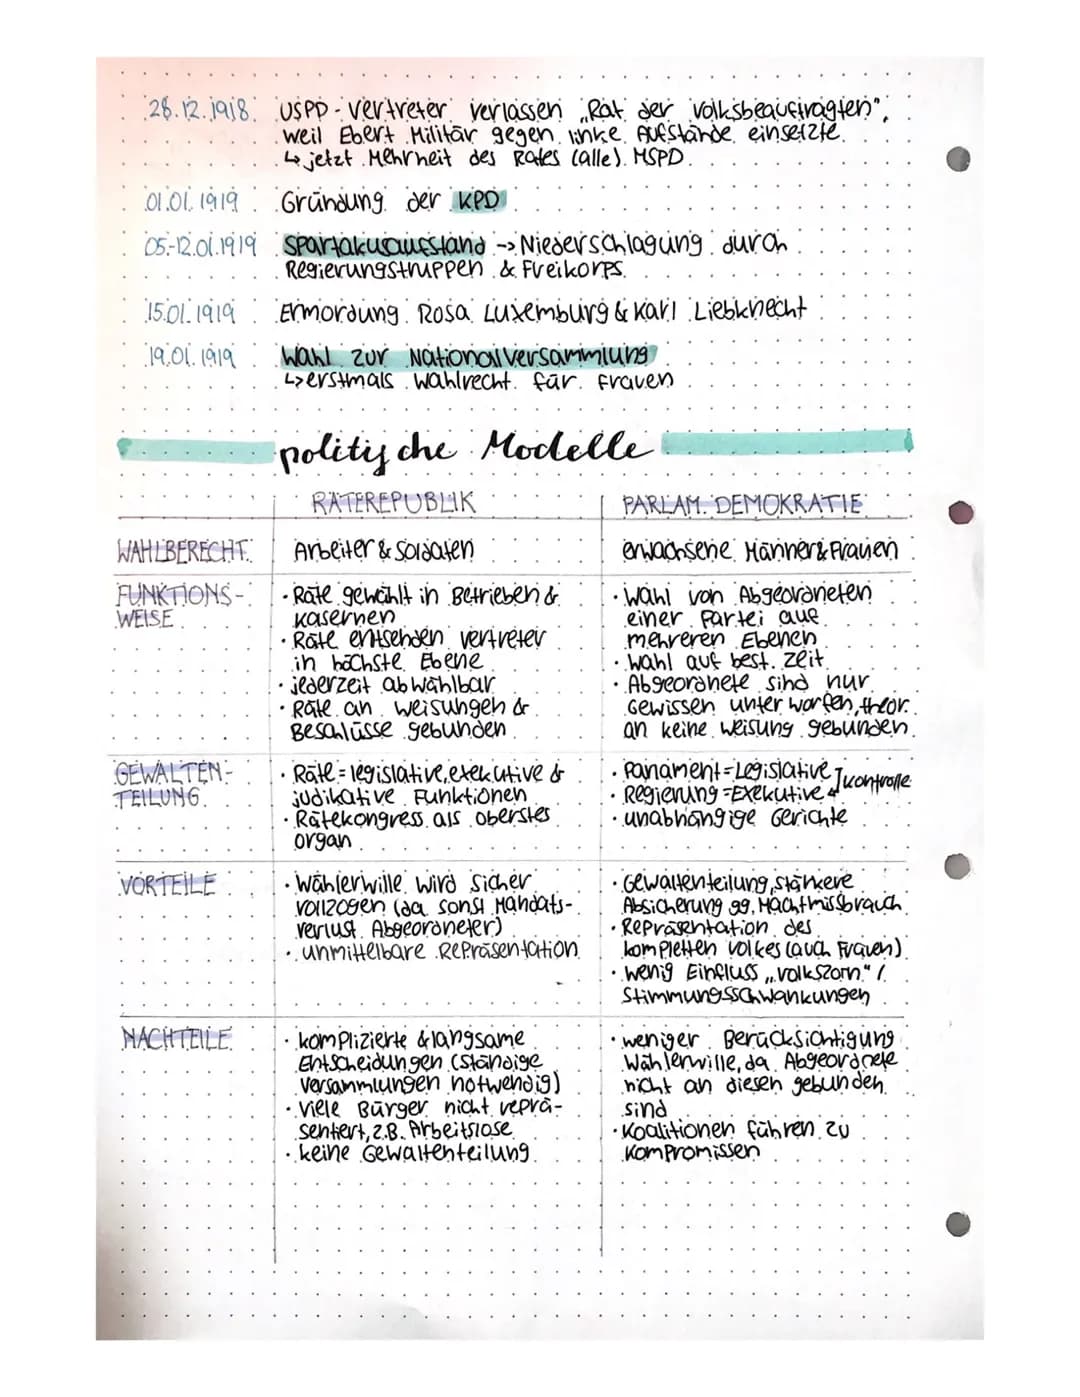 28.12.1918 USPD-Vertreter verlassen „Rat der Volksbeauftragten",
weil Ebert Militär gegen linke Aufstände einsetzte
↳ jetzt Mehrheit des Rates (alle) MSPD
01.01.1919 Gründung der KPD
05.-12.01.1919 Spartakusaufstand -> Niederschlagung durch
Regierungstruppen & Freikorps
15.01.1919 Ermordung Rosa Luxemburg & Karl Liebknecht
19.01.1919 Wahl zur Nationalversammlung
↳ erstmals Wahlrecht für Frauen
politische Modelle
RÄTEREPUBLIK
PARLAM. DEMOKRATIE
WAHLBERECHT.
Arbeiter & Soldaten
erwachsene Männer & Frauen
FUNKTIONS-
WEISE
· Räte gewählt in Betrieben &
Kasernen
· Räte entsenden Vertreter
in höchste Ebene
· jederzeit abwählbar
· Räte an Weisungen &
Beschlüsse gebunden
· Wahl von Abgeordneten
einer Partei auf
mehreren Ebenen
· Wahl auf best. Zeit
· Abgeordnete sind nur
Gewissen unterworfen, theor.
an keine Weisung gebunden
GEWALTEN-
TEILUNG
· Räte = legislative, exekutive &
judikative Funktionen
· Rätekongress als oberstes
Organ
· Parlament = Legislative
· Regierung = Exekutive
Kontrolle
· unabhängige Gerichte
VORTEILE
· Wählerwille wird sicher
vollzogen (da sonst Mandats-
verlust Abgeordneter)
· unmittelbare Repräsentation
· Gewaltenteilung, stärkere
Absicherung gg. Machtmissbrauch
· Repräsentation des
kompletten Volkes (auch Frauen)
· wenig Einfluss „Volkszorn" /
Stimmungsschwankungen
NACHTEILE
· komplizierte & langsame
Entscheidungen (ständige
Versammlungen notwendig)
· viele Bürger nicht reprä-
sentiert, z.B. Arbeitslose
· keine Gewaltenteilung
· weniger Berücksichtigung
Wählerwille, da Abgeordnete
nicht an diesen gebunden
sind
· Koalitionen führen zu
Kompromissen